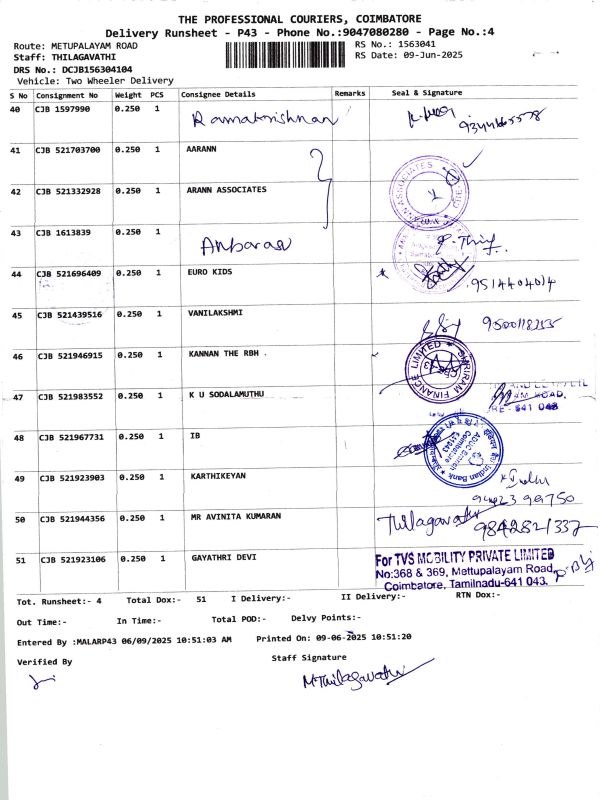 THE PROFESSIONAL COURIERS, COIMBATORE
Delivery Runsheet - P43 - Phone No.:9047080280 - Page No.:4
Route: METUPALAYAM ROAD
RS No.: 1563041
Staff: THILAGAVATHI
RS Date: 09-Jun-2025
DRS No.: DCJB156304104
Vehicle: Two Wheeler Delivery
S No Consignment No Weight PCS Consignee Details Remarks Seal & Signature
40 CJB 1597990 0.250 1 Ramakrishnan
41 CJB 521703700 0.250 1 AARANN
42 CJB 521332928 0.250 1 ARANN ASSOCIATES
43 CJB 1613839 0.250 1 Anbarasu
44 CJB 521696409 0.250 1 EURO KIDS 9514404014
45 CJB 521439516 0.250 1 VANILAKSHMI
46 CJB 521946915 0.250 1 KANNAN THE RBH . SHRIRAM FINANCE LIMITED
47 CJB 521983552 0.250 1 K U SODALAMUTHU
48 CJB 521967731 0.250 1 IB Indian Bank
49 CJB 521923903 0.250 1 KARTHIKEYAN
50 CJB 521944356 0.250 1 MR AVINITA KUMARAN Thilagavathi 9842821337
51 CJB 521923106 0.250 1 GAYATHRI DEVI For TVS MOBILITY PRIVATE LIMITED
No:368 & 369, Mettupalayam Road,
Coimbatore, Tamilnadu-641 043.
Tot. Runsheet:- 4 Total Dox:- 51 I Delivery:- II Delivery:- RTN Dox:-
Out Time:- In Time:- Total POD:- Delvy Points:-
Entered By :MALARP43 06/09/2025 10:51:03 AM Printed On: 09-06-2025 10:51:20
Verified By Staff Signature
M.Thilagavathi